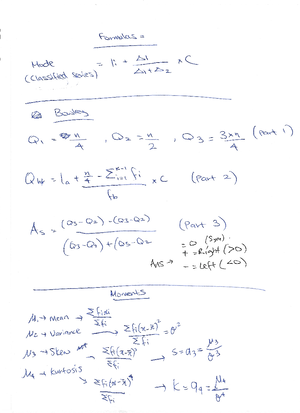 Formulas =
Mode (Classified series) = l1 + Δ1 / Δ1 + Δ2 × C
Bowley
Q1 = n/4 , Q2 = n/2 , Q3 = 3×n/4 (Part 1)
= l + n/4 - Σ fi / fb × C (Part 2)
As = (Q3-Q2) - (Q3-Q2) / (Q3-Q2) + (Q3-Q2 (Part 3)
= 0 (Sym)
+ = Right (>0)
As → - = Left (<0)
Moments
μ1 → mean → Σfixi / Σfi
μ2 → Variance → Σfi(x-x̄)² / Σfi = σ²
μ3 → Skew → Σfi(x-x̄)³ / Σfi → S = a3 = μ3 / σ³
μ4 → kurtosis → Σfi(x-x̄)⁴ / Σfi → K = a4 = μ4 / σ⁴